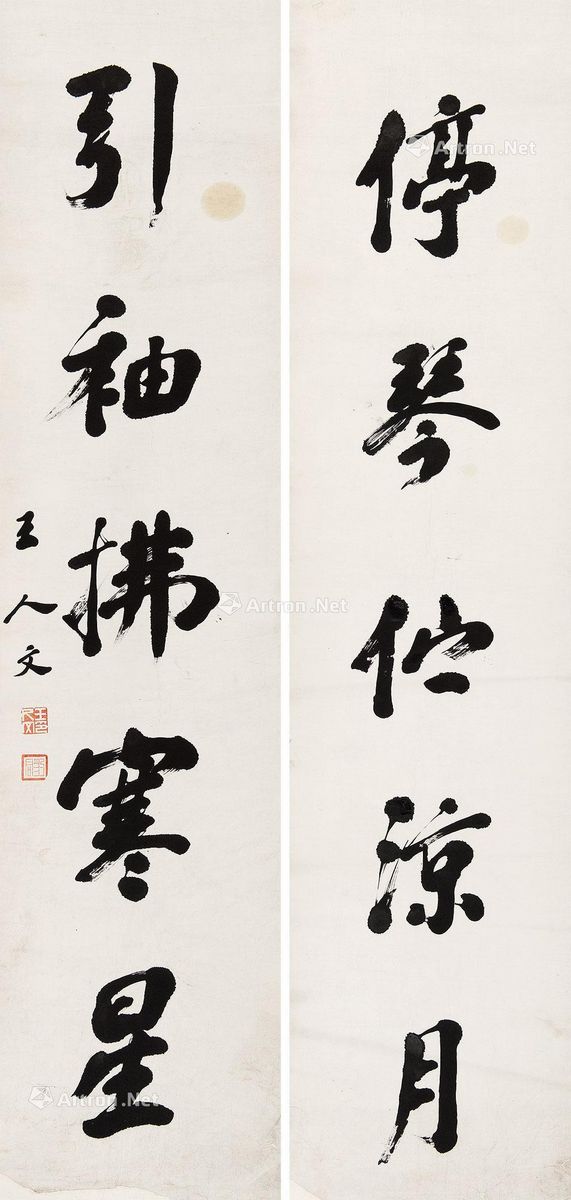 停琴佇涼月
引袖拂寒星
王人文
Artron.Net
Artron.Net
Artron.Net